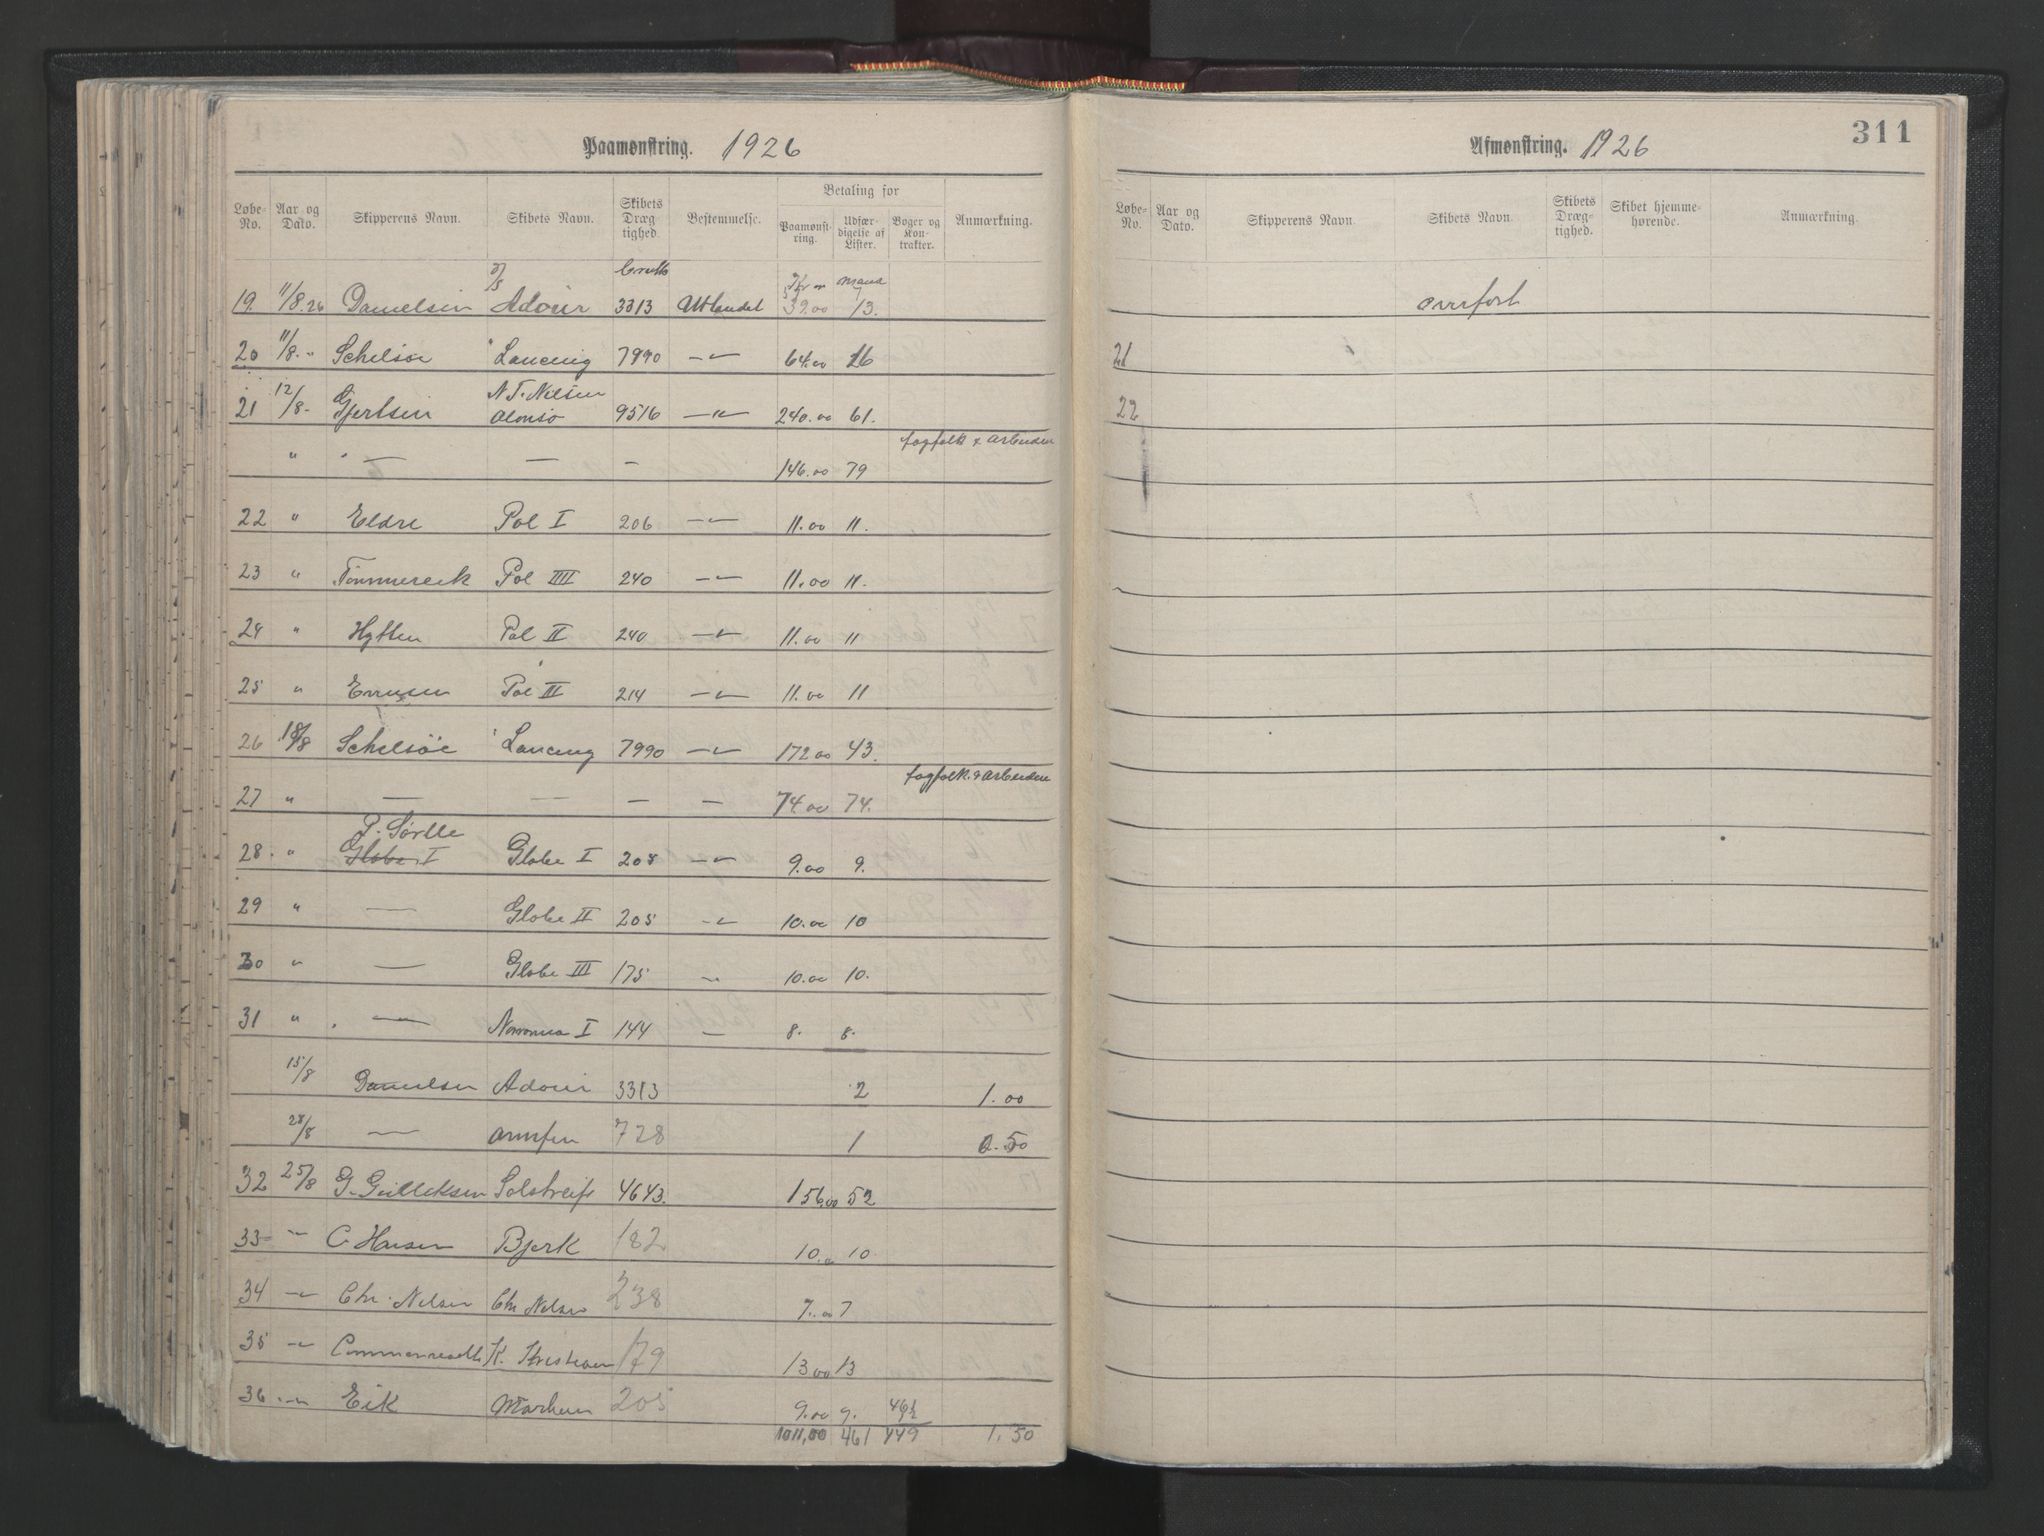 Paamønstring. 1926
Betaling for
Løbe-No. Aar og Dato. Skipperens Navn. Skibets Navn. Skibets Dræg-tighed. Bestemmelse. Paamønst-ring. Udfær-digelse af Lister. Bøger og Kon-trakter. Anmærkning.
Brutto Kr mand
19. 11/8.26 Danielsen D/S Adour 3313 Utlandet 39.00 13.
20 11/8 - " Schelsøe " Lancing 7990 -"- 64.00 16
21 12/8 - Gjertsen N.T. Nielsen Alonso 9516 -"- 240.00 61.
fagfolk & arbeidere
" " — — — 146.00 79
22 " Eldre Pol I 206 -"- 11.00 11.
23 " Tømmereek Pol IIII 240 -"- 11.00 11.
24 " Hytten Pol II 240 -"- 11.00 11
25 " Pol III 214 -"- 11.00 11
26 18/8 Schelsøe " Lancing 7990 -"- 172.00 43.
fagfolk & arbeidere
27 " — — — — 74.00 74.
P. Sørlle
28. " Globe I Globe I 205 -"- 9.00 9.
29 " — Globe II 205 -"- 10.00 10
30 " — Globe III 175 " 10.00 10.
31 " — Norrøna I 144 — 8. 8.
15/8 Danielsen Adour 3313 2 1.00
28/8 — 728 1 0.50
32 25/8 G. Gulliksen Solstreif 4643. 156.00 52
33 -"- C. Hansen Bjerk 182 10.00 10
34 -"- Chr. Nilsen Chr Nilsen 238 7.00 7
35 -"- K. Kristian 179 13.00 13
36 -"- Eik 205 9.00 9. 461
12
1011,00 461 449 1.50
Afmønstring. 1926
311
Løbe-No. Aar og Dato. Skipperens Navn. Skibets Navn. Skibets Dræg-tighed. Skibet hjemme-hørende. Anmærkning.
overført
21
22